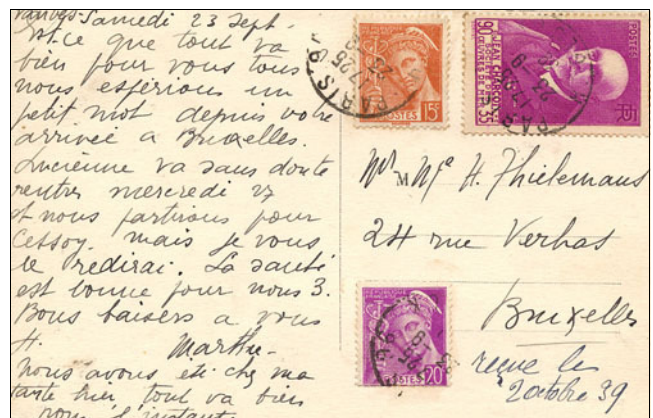 Vanves-Samedi 23 Sept.
Est-ce que tout va
bien pour vous tous
nous espérions un
petit mot depuis votre
arrivée a Bruxelles.
Lucienne va sans doute
rentrer mercredi 27
et nous partirons pour
Cessoy. mais je vous
le redirai. La santé
est bonne pour nous 3.
Bons baisers a vous
4. Marthe-
nous avons été chez ma
tante hier, tout va bien
pour l'instant.
15c
POSTES
PARIS
POSTES
JEAN CHARCOT
90c
35c
RF
PARIS
Mr M Me H. Thielemans
24 rue Verhas
Bruxelles
POSTES
20c
reçue le
2 octobre 39